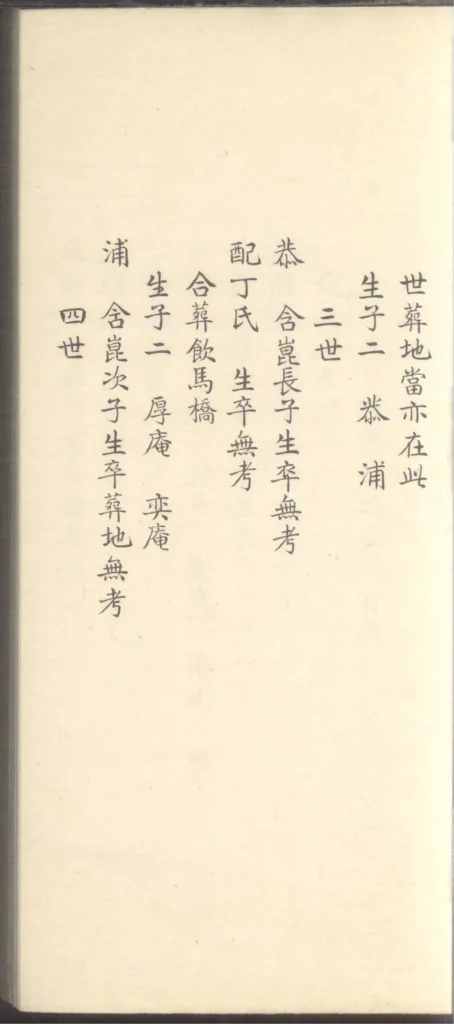 世葬地當亦在此
生子二　恭　浦
三世
恭　含崑長子生卒無考
配丁氏　生卒無考
合葬飲馬橋
生子二　厚庵　奕庵
浦　含崑次子生卒葬地無考
四世